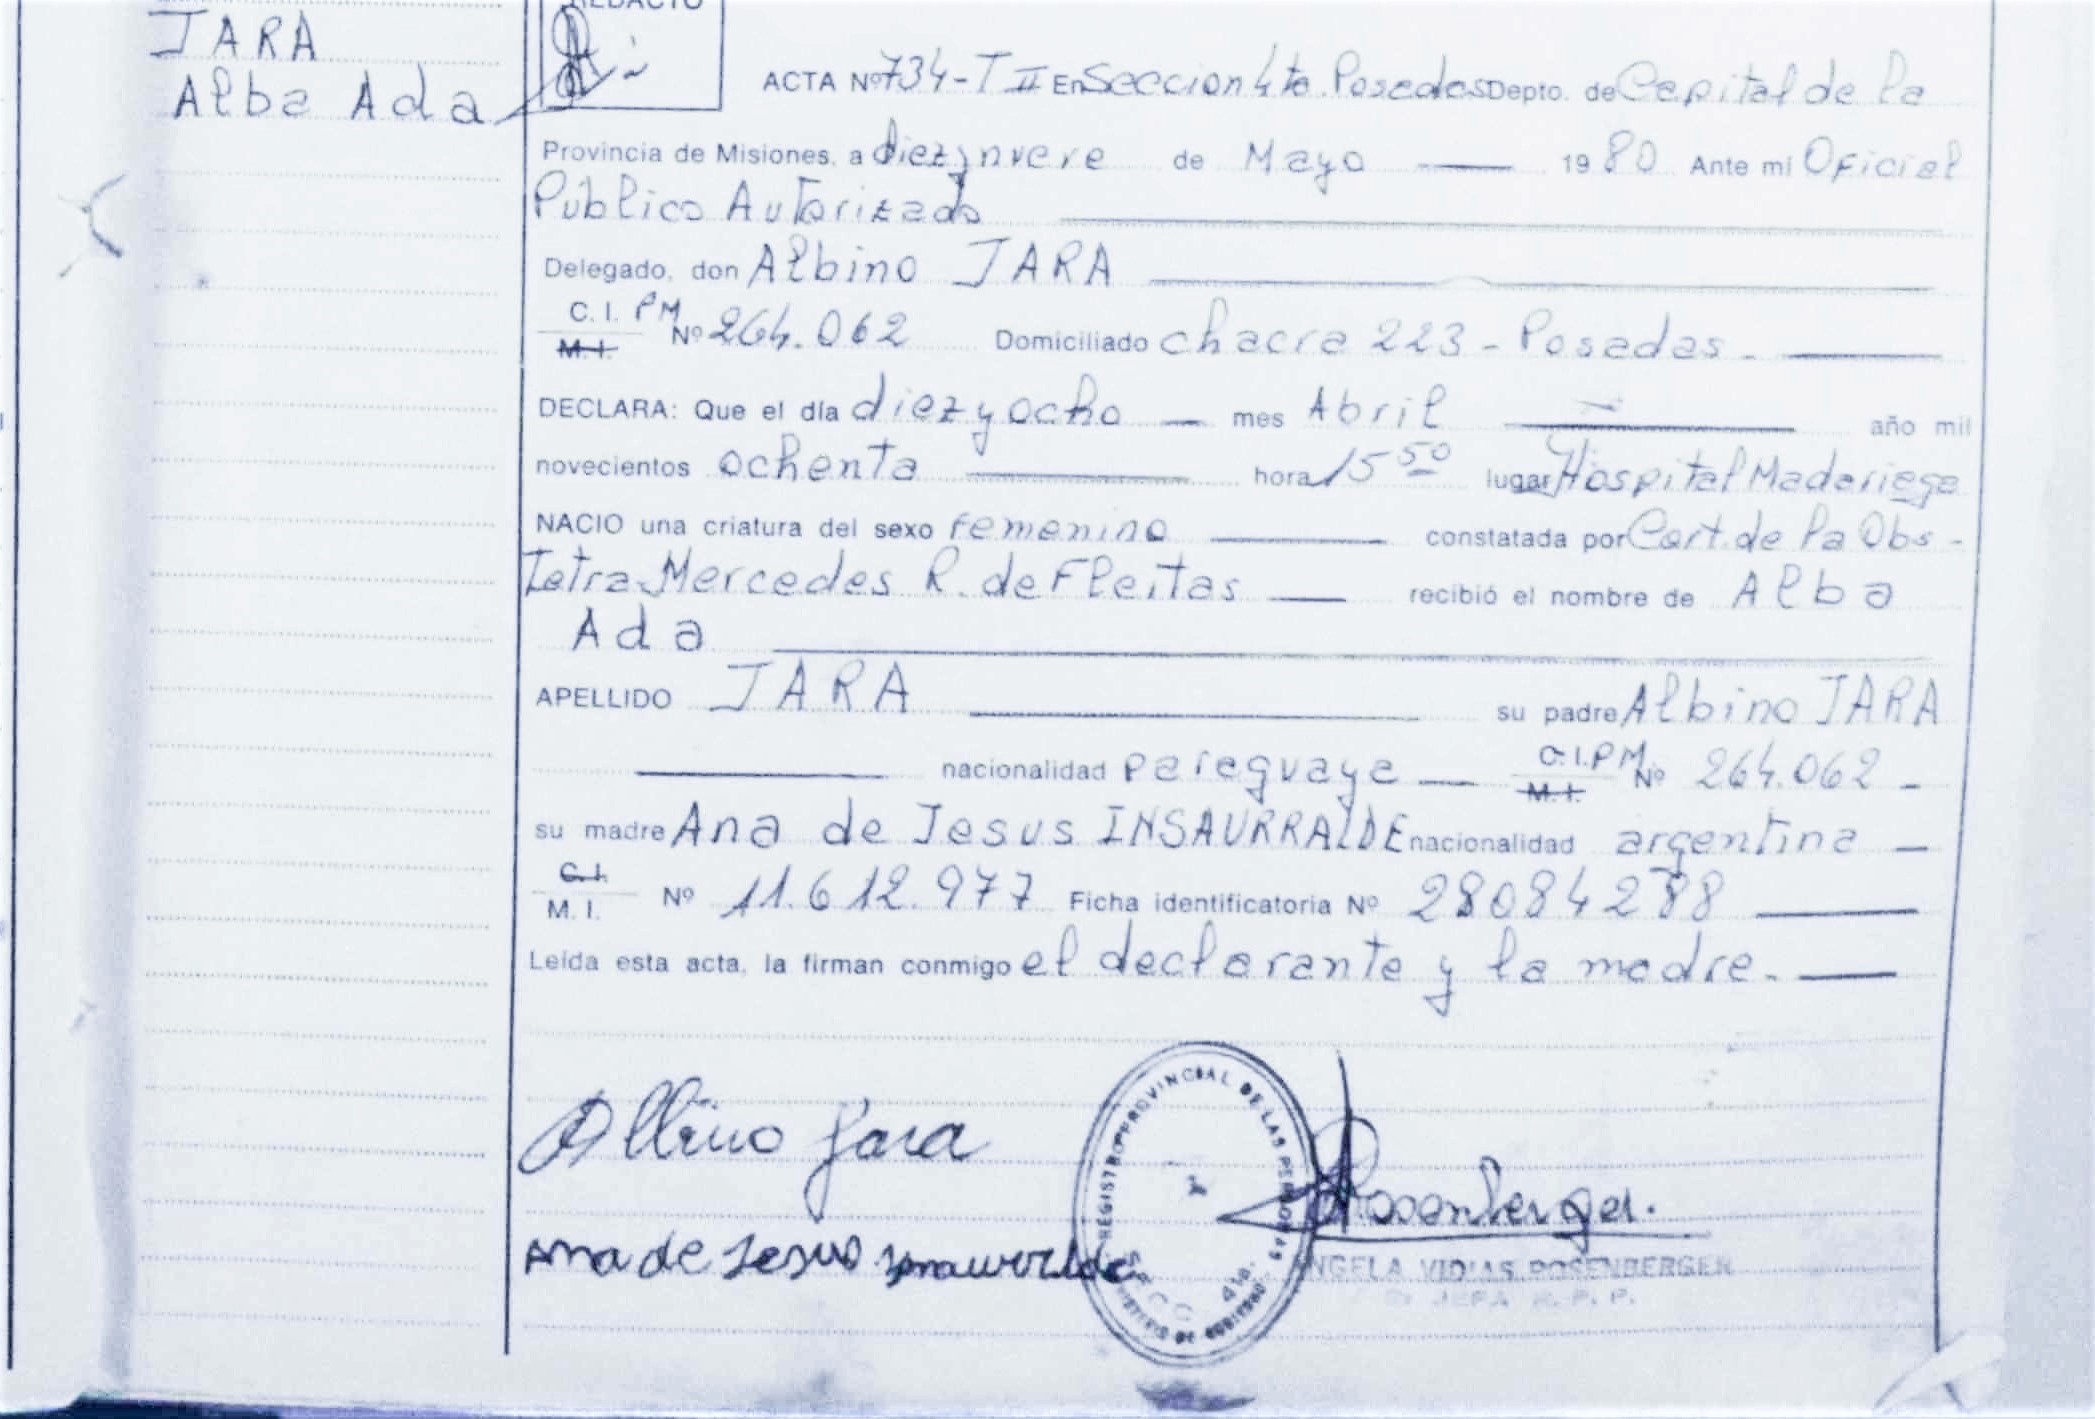 JARA
Alba Ada
REDACTO
ACTA Nº 734-T II En Seccion 4ta Posadas Depto. de Capital de la
Provincia de Misiones, a diez y nueve de Mayo 19 80 Ante mi Oficial
Público Autorizado
Delegado, don Albino JARA
C. I. PM
M. I. Nº 264.062 Domiciliado chacra 223 - Posadas -
DECLARA: Que el día diez y ocho mes Abril año mil
novecientos ochenta hora 15 50 lugar Hospital Madariaga
NACIO una criatura del sexo femenino constatada por Cert. de la Obs-
tetra Mercedes R. de Fleitas recibió el nombre de Alba
Ada
APELLIDO JARA su padre Albino JARA
nacionalidad paraguaya C. I. PM M. I. Nº 264.062 -
su madre Ana de Jesus INSAURRALDE nacionalidad argentina
C. I.
M. I. Nº 11.612.977 Ficha identificatoria Nº 28084288
Leída esta acta, la firman conmigo el declarante y la madre.-
Albino Jara
REGISTRO PROVINCIAL DE LAS PERSONAS
SECC. 4ta.
Rosenberger.
Ana de Jesus
ROSENBERGER
JEFA R. P. P.